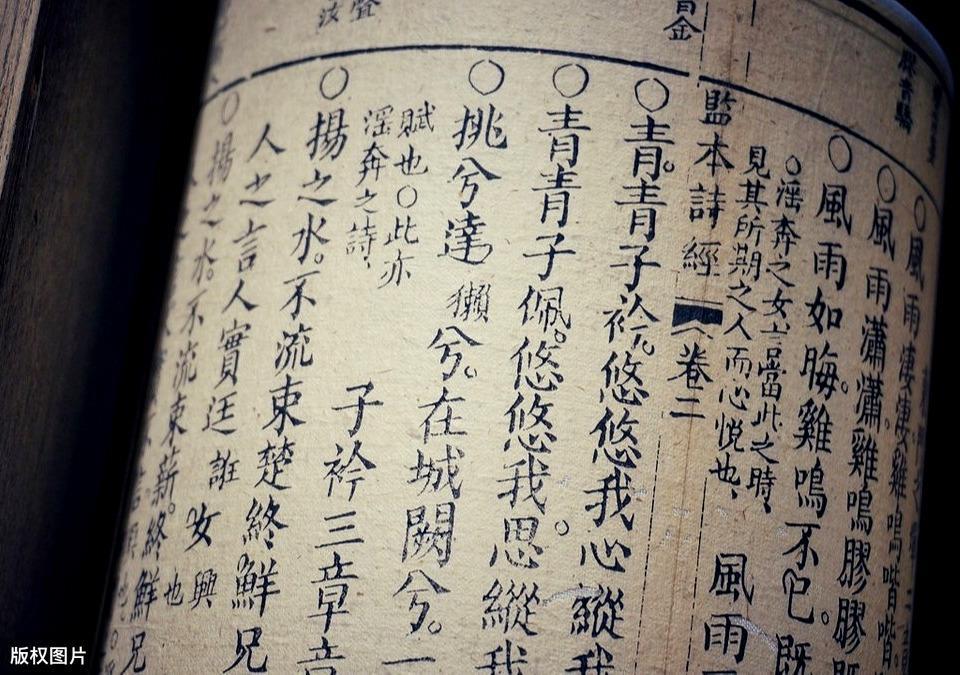 ○風雨淒淒雞鳴喈喈
○風雨瀟瀟。雞鳴膠膠
○風雨如晦。雞鳴不已。既
○淫奔之女言當此之時、
見其所期之人而心悅也、
風雨
監本詩經
卷二
○青青子衿。悠悠我心縱我
○青青子佩。悠悠我思。縱我
○挑兮達兮。在城闕兮。一
獺
賦也○此亦
淫奔之詩、
子衿三章章
○揚之水。不流束楚終鮮兄
人之言人實迋女
誑
興
也
○揚之水。不流束薪。終鮮兄
版权图片